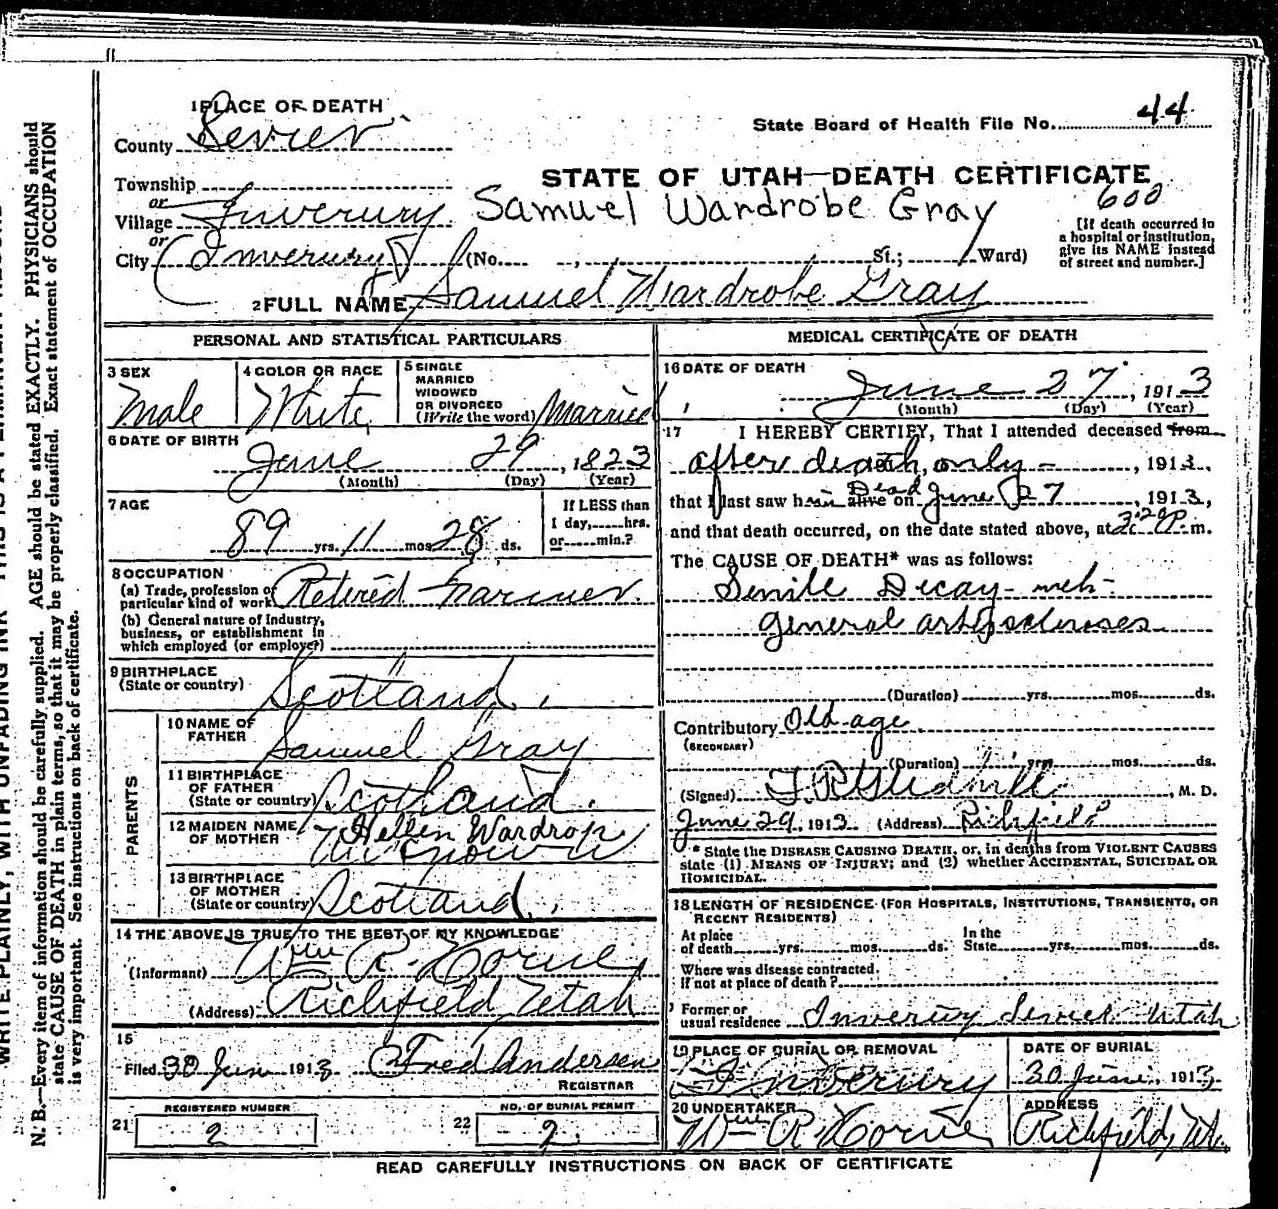 1 PLACE OF DEATH
County Sevier
State Board of Health File No. 44
STATE OF UTAH—DEATH CERTIFICATE
Township
or
Village Inverury
Samuel Wardrobe Gray
600
or
City Inverury (No. , St.; Ward)
[If death occurred in
a hospital or institution,
give its NAME instead
of street and number.]
2 FULL NAME Samuel Wardrobe Gray
PERSONAL AND STATISTICAL PARTICULARS
3 SEX
Male
4 COLOR OR RACE
White
5 SINGLE
MARRIED
WIDOWED
OR DIVORCED
(Write the word) Married
6 DATE OF BIRTH
June 29, 1823
(Month) (Day) (Year)
7 AGE
89 yrs. 11 mos. 28 ds.
If LESS than
1 day, hrs.
or min.?
8 OCCUPATION
(a) Trade, profession or
particular kind of work Retired Farmer
(b) General nature of industry,
business, or establishment in
which employed (or employer)
9 BIRTHPLACE
(State or country) Scotland.
PARENTS
10 NAME OF
FATHER Samuel Gray
11 BIRTHPLACE
OF FATHER
(State or country) Scotland.
12 MAIDEN NAME
OF MOTHER Hellen Wardrop
Unknown
13 BIRTHPLACE
OF MOTHER
(State or country) Scotland.
14 THE ABOVE IS TRUE TO THE BEST OF MY KNOWLEDGE
(Informant) Wm R. Horne
(Address) Richfield Utah
15
Filed 30 June 1913 Fred Andersen
REGISTRAR
REGISTERED NUMBER
21 2
NO. OF BURIAL PERMIT
22 2.
MEDICAL CERTIFICATE OF DEATH
16 DATE OF DEATH
June 27, 1913
(Month) (Day) (Year)
17 I HEREBY CERTIFY, That I attended deceased from
after death, only - , 1913,
that I last saw him alive Dead on June 27, 1913,
and that death occurred, on the date stated above, at 3:20 P. m.
The CAUSE OF DEATH* was as follows:
Senile Decay - with -
general
(Duration) yrs. mos. ds.
Contributory Old age
(SECONDARY)
(Duration) yrs. mos. ds.
(Signed) T. R. Gledhill, M. D.
June 29, 1913 (Address) Richfield
* State the DISEASE CAUSING DEATH, or, in deaths from VIOLENT CAUSES
state (1) MEANS OF INJURY; and (2) whether ACCIDENTAL, SUICIDAL OR
HOMICIDAL.
18 LENGTH OF RESIDENCE (FOR HOSPITALS, INSTITUTIONS, TRANSIENTS, OR
RECENT RESIDENTS)
At place
of death yrs. mos. ds.
In the
State yrs. mos. ds.
Where was disease contracted.
if not at place of death?
Former or
usual residence Inverury Sevier Utah
19 PLACE OF BURIAL OR REMOVAL
Inverury
DATE OF BURIAL
30 June, 1913
20 UNDERTAKER
Wm R. Horne
ADDRESS
Richfield, Ut.
READ CAREFULLY INSTRUCTIONS ON BACK OF CERTIFICATE
WRITE PLAINLY, WITH UNFADING INK—THIS IS A PERMANENT RECORD
N. B.—Every item of information should be carefully supplied. AGE should be stated EXACTLY. PHYSICIANS should
state CAUSE OF DEATH in plain terms, so that it may be properly classified. Exact statement of OCCUPATION
is very important. See instructions on back of certificate.